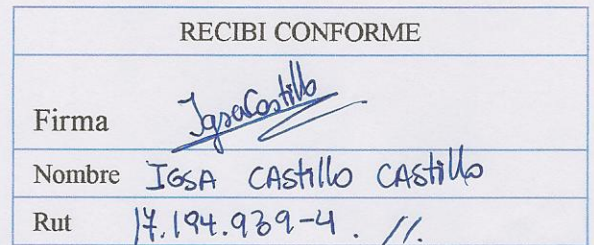 RECIBI CONFORME
Firma IgsaCastillo
Nombre IGSA CAStillo CAStillo
Rut 17.194.939-4. //.